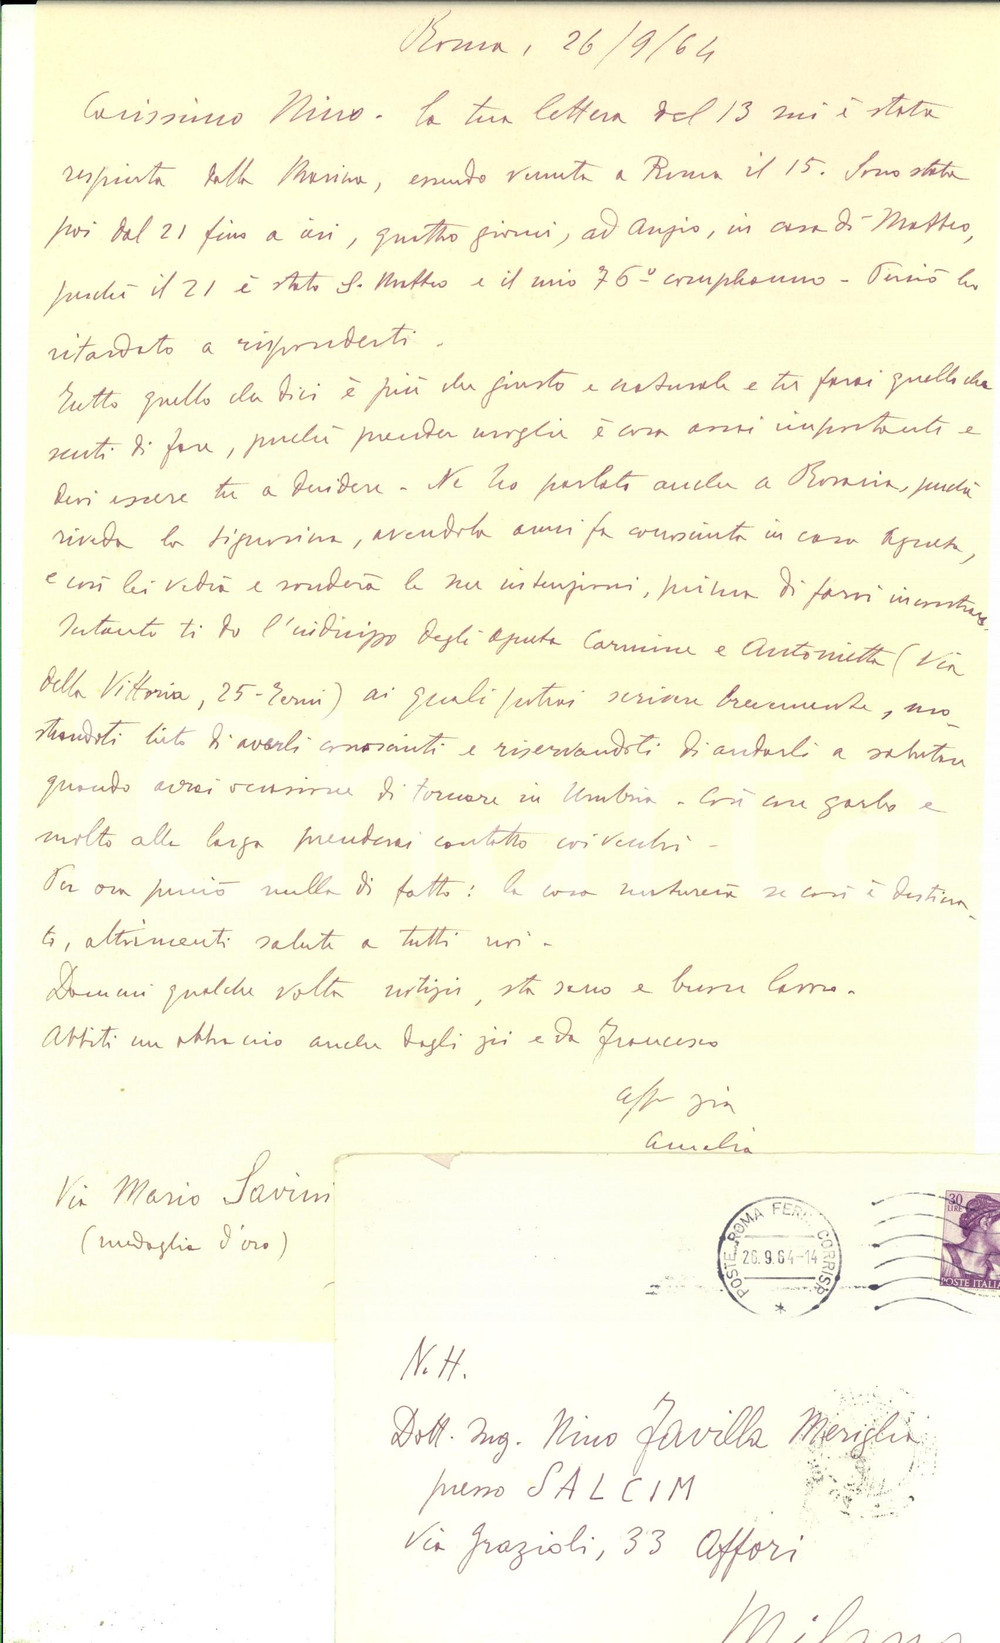 Roma, 26/9/64
Carissimo Nino - la tua lettera del 13 mi è stata
respinta dalla Marina, essendo venuta a Roma il 15. Sono stata
poi dal 21 fino a ieri, quattro giorni, ad Anzio, in casa di Matteo,
perchè il 21 è stato S. Matteo e il mio 76° compleanno - Perciò ho
ritardato a risponderti -
Tutto quello che dici è più che giusto e naturale e tu farai quello che
senti di fare, perchè prender moglie è cosa assai importante e
devi essere tu a decidere - Ne ho parlato anche a Rosaria, perchè
riveda la signorina, avendola anni fa conosciuta in casa
e così lei vedrà e sonderà le sue intenzioni, prima di farvi incontrare.
Intanto ti do l'indirizzo degli Carmine e Antonietta (Via
della Vittoria, 25 - Terni) ai quali potrai scrivere brevemente, mo-
strandoti lieto di averli conosciuti e riservandoti di andarli a salutare
quando avrai occasione di tornare in Umbria - Così con garbo e
molto alla larga prenderai contatto coi vecchi -
Per ora perciò nulla di fatto: la cosa maturerà se così è destina-
to, altrimenti salute a tutti noi -
Dammi qualche volta notizie, sta sano e buon lavoro -
Abbiti un abbraccio anche dagli zii e da Francesco
aff zia
Amelia
Via Mario Savini
(medaglia d'oro)
POSTE ROMA FERR. CORRISP.
26.9.64-14
30 LIRE
POSTE ITALIA
N. H.
Dott. Ing. Nino Favilla Meriglia
presso SALCIM
Via Grazioli, 33 Affori
Milano